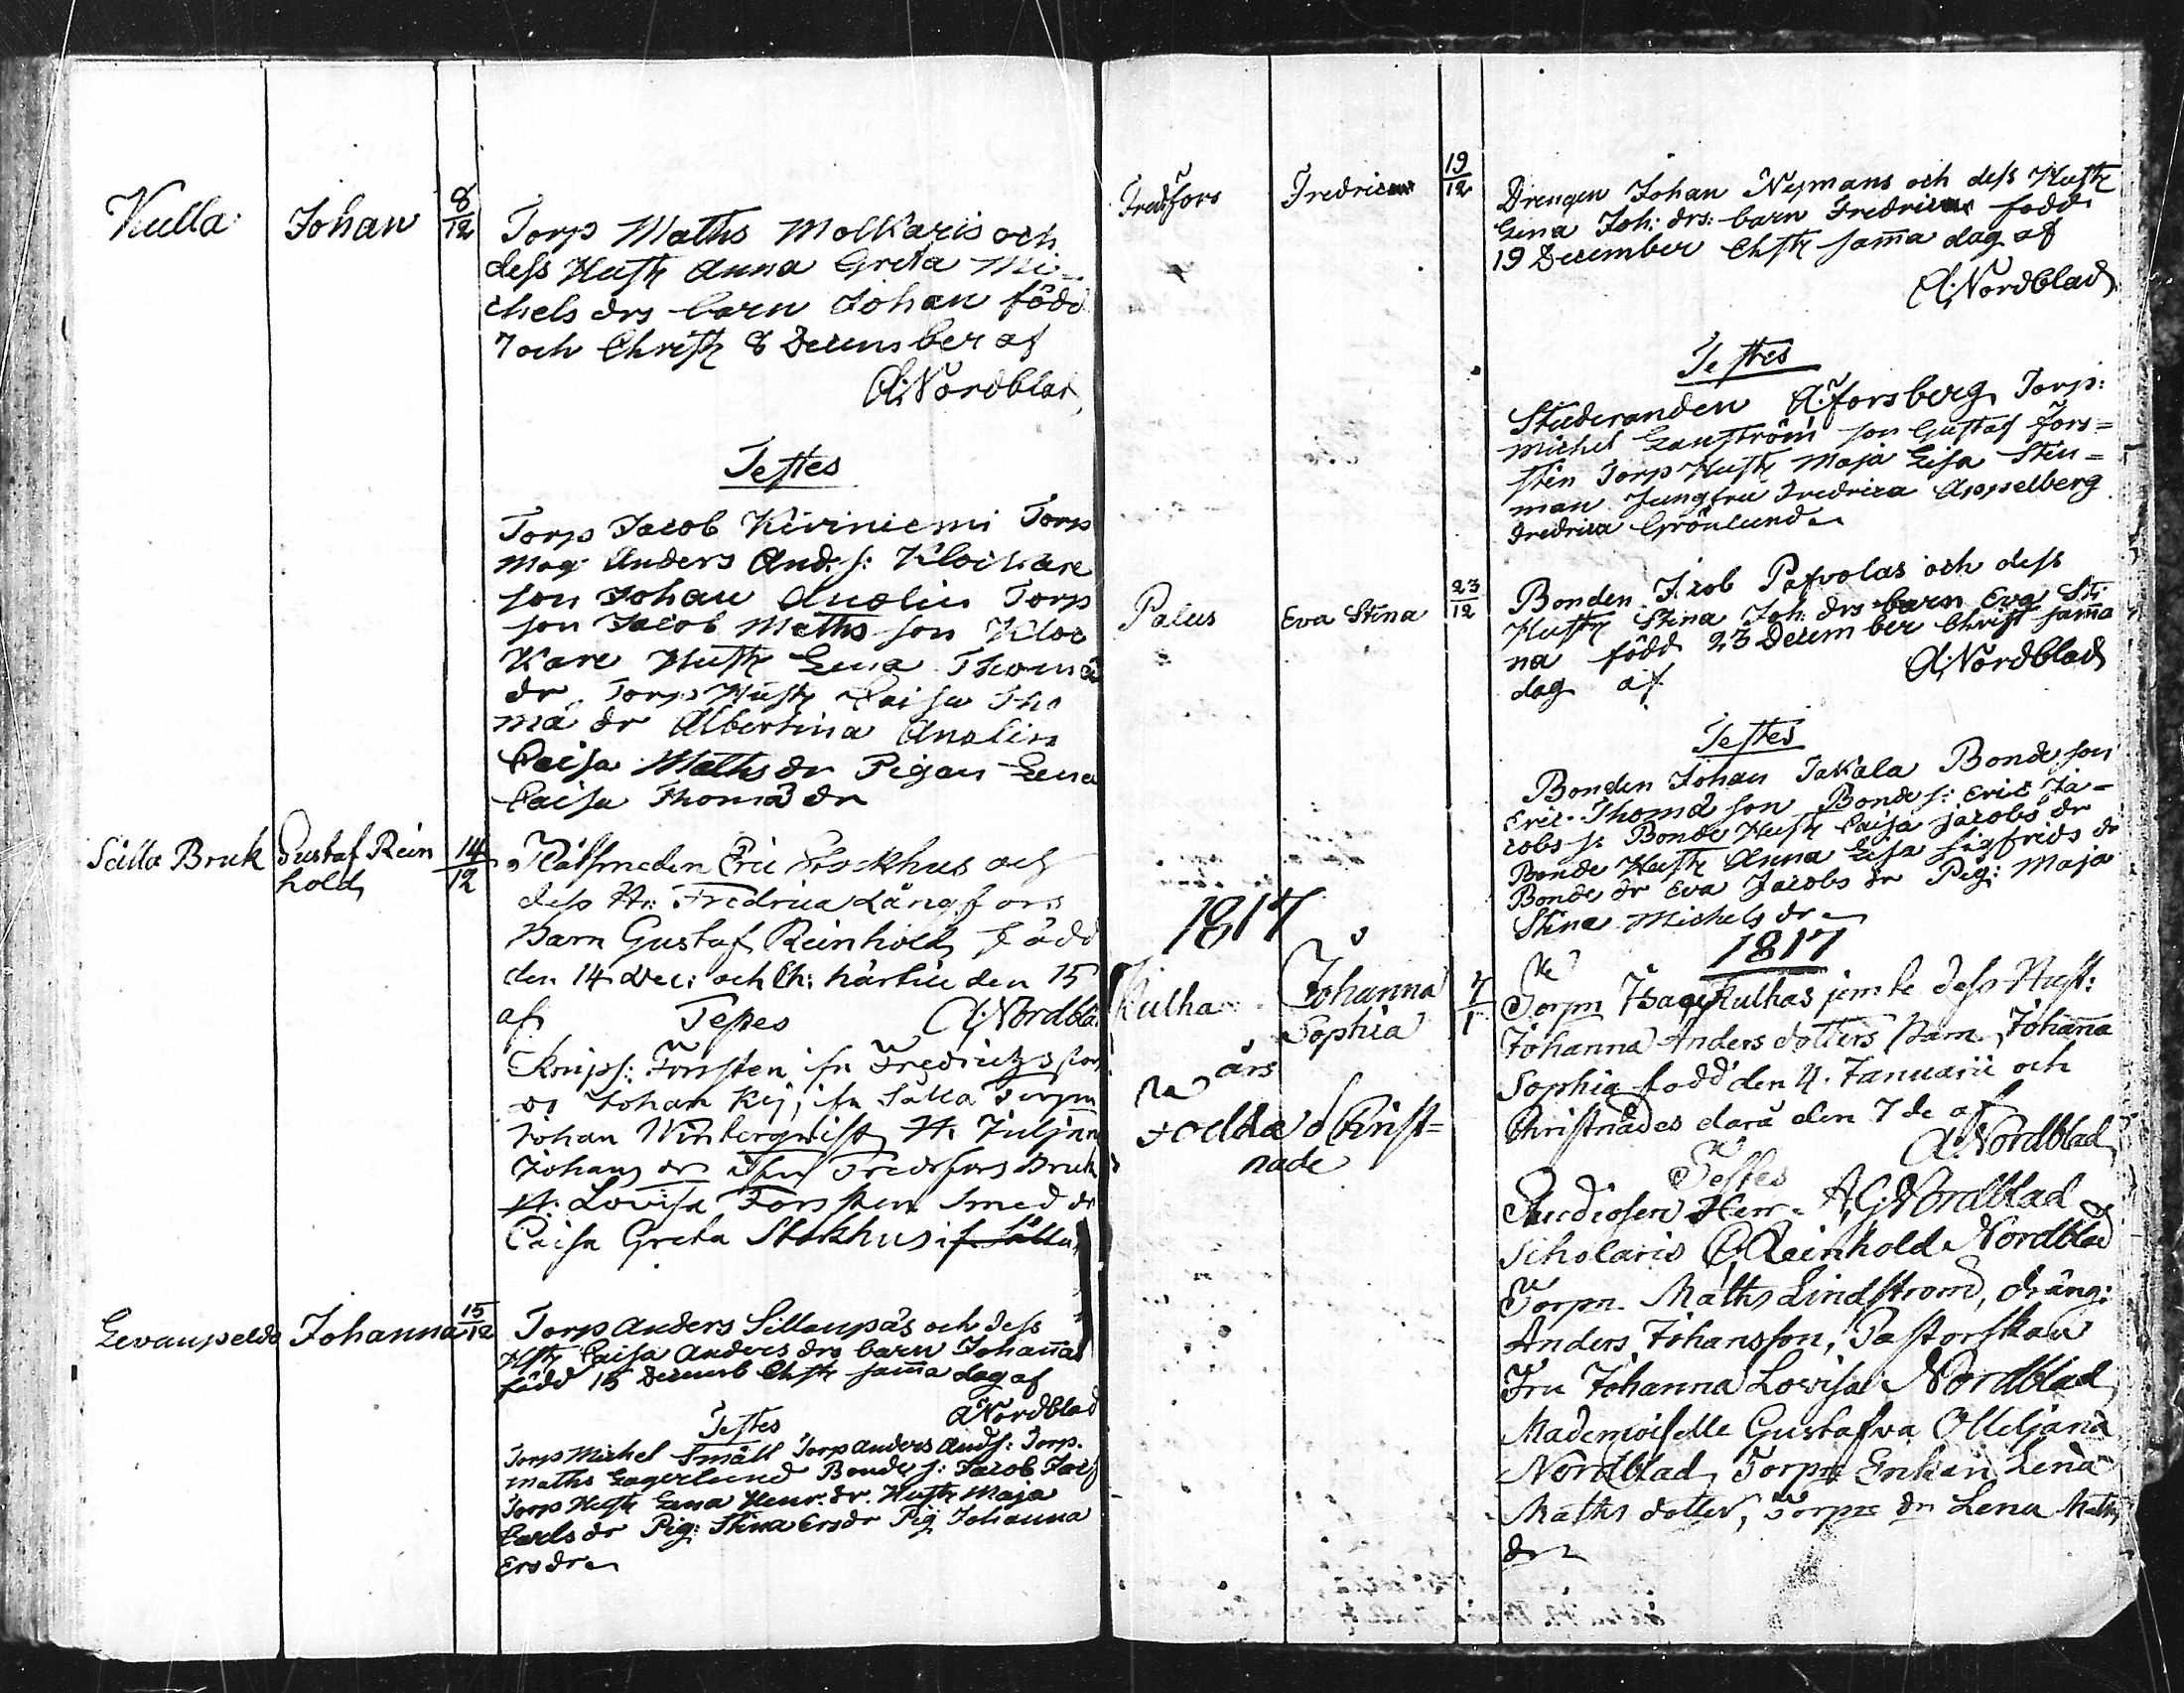 Kulla Johan 8/12 Torp Maths Molkaris och
dess Hustr Anna Greta Mi=
chels drs barn Johan född
7 och Christr 8 December af
A: Nordblad
Testes
Torp Jacob Kiviniemi Torp
Mag Anders And. s: Klockare
son Johan Analin Torp
son Jacob Maths son Kloc
kare Hustr Lena Thoma
dr Torp Hustr Caisa Tho
mä dr Albertina Analin
Caisa Maths dr Pigan Lena
Caisa Thomä dr
Sälla Bruk Gustaf Rein
hold 14/12 Eric Stockhus och
dess H: Fredrica Långfors
Barn Gustaf Reinhold född
den 14 Dec: och Ch: härtill den 15
af Testes A: Nordblad
Forsten ifr Fredrics
Johan ifr Sälla Torpn
Johan H: Juljana
Johans dr ifrn Fredrsfors Bruk
H: Lovisa Forsten Smed dr
Caisa Greta Stokhus if Sälla
Levanpeldo Johanna 15/12 Torp Anders Sillanpäs och dess
Hstr Caisa Anders drs barn Johanna
född 15 Decemb Chstr samma dag af
A Nordblad
Testes
Torp Michel Smäll Torp Anders Ands: Torp.
Maths Lagerlund Bonde s: Jacob Jacs
Torp Hustr Lena Henr. dr. Hustr Maja
Carls dr Pig: Stina Ersdr Pig Johanna
Ersdr
Fredsfors Fredrica 19/12 Drengen Johan Neymans och dess Hustr
Lena Joh: drs: barn Fredrica född
19 December Chstr samma dag af
A: Nordblad
Testes
Studeranden A: Forsberg Torp:
Michel Lanström son Gustaf Fors=
stén Torp Hustr Maja Lisa Sten=
man Jungfru Fredrica Appelberg
Fredrica Grönlund
Palus Eva Stina 23/12 Bonden Jacob Pafvolas och dess
Hustr Stina Joh: drs barn Eva Sti
na född 23 December Christ samma
dag af A: Nordblad
Testes
Bonden Johan Jakala Bonde son
Eric Thomä son Bonde s: Eric Ja=
cobs s: Bonde Hustr Caisa Jacobs dr
Bonde Hustr Anna Lisa Sigfreds dr
Bonde dr Eva Jacobs dr Pig: Maja
Stina Michels dr
1817 1817
Kulha Johanna
Sophia 7/1 Torpn Isac Kulhas jemte dess Hust:
Johanna Anders dotters Barn Johanna
Sophia född den 4. Januarii och
Christnades darä den 7de af
A: Nordblad
års
Födda o Christ=
nade
Testes
Studiosen Herr A, G: Nordblad
Scholaris C. Reinhold Nordblad
Torpn. Maths Lindström, dräng:
Anders Johansson, Pastorskan
Fru Johanna Lovisa Nordblad
Mademoiselle Gustafva Ottiljana
Nordblad, Torpr Enkan Lena
Maths dotter, Torpre dr Lena Maths
dr